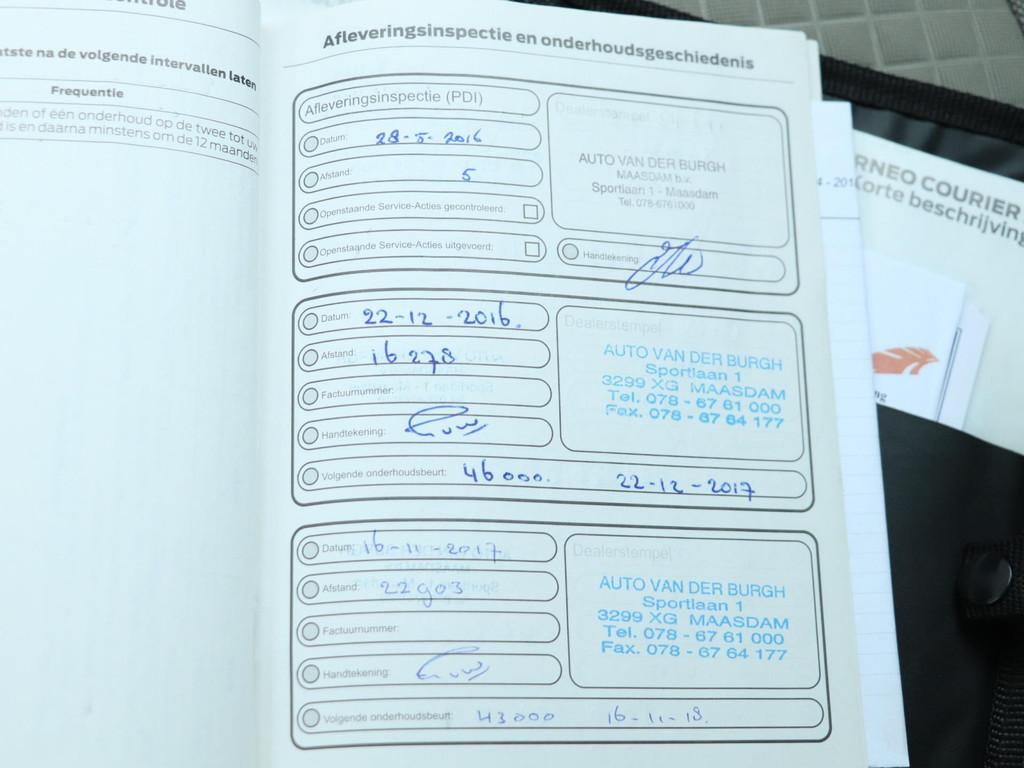 ontrole
atste na de volgende intervallen laten
Frequentie
nden of één onderhoud op de twee tot uw
d is en daarna minstens om de 12 maanden
Afleveringsinspectie en onderhoudsgeschiedenis
Afleveringsinspectie (PDI)
Datum: 28-5-2016
Afstand: 5
Openstaande Service-Acties gecontroleerd:
Openstaande Service-Acties uitgevoerd:
Dealerstempel
AUTO VAN DER BURGH
MAASDAM b.v.
Sportlaan 1 - Maasdam
Tel. 078-6761000
Handtekening:
Datum: 22-12-2016.
Afstand: 16278
Factuurnummer:
Handtekening:
Dealerstempel
AUTO VAN DER BURGH
Sportlaan 1
3299 XG MAASDAM
Tel. 078 - 67 61 000
Fax. 078 - 67 64 177
Volgende onderhoudsbeurt: 46000. 22-12-2017
Datum: 16-11-2017
Afstand: 22903
Factuurnummer:
Handtekening:
Dealerstempel
AUTO VAN DER BURGH
Sportlaan 1
3299 XG MAASDAM
Tel. 078 - 67 61 000
Fax. 078 - 67 64 177
Volgende onderhoudsbeurt: 43000 16-11-18.
4 - 201
RNEO COURIER
orte beschrijving